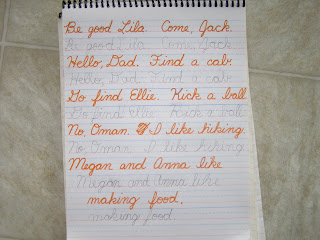 Be good Lila. Come, Jack.
Be good Lila. Come, Jack.
Hello, Dad. Find a cab.
Hello, Dad. Find a cab.
Go find Ellie. Kick a ball
Go find Ellie. Kick a ball
No, Oman. I like hiking.
No, Oman. I like hiking
Megan and Anna like
Megan and Anna like
making food.
making food.